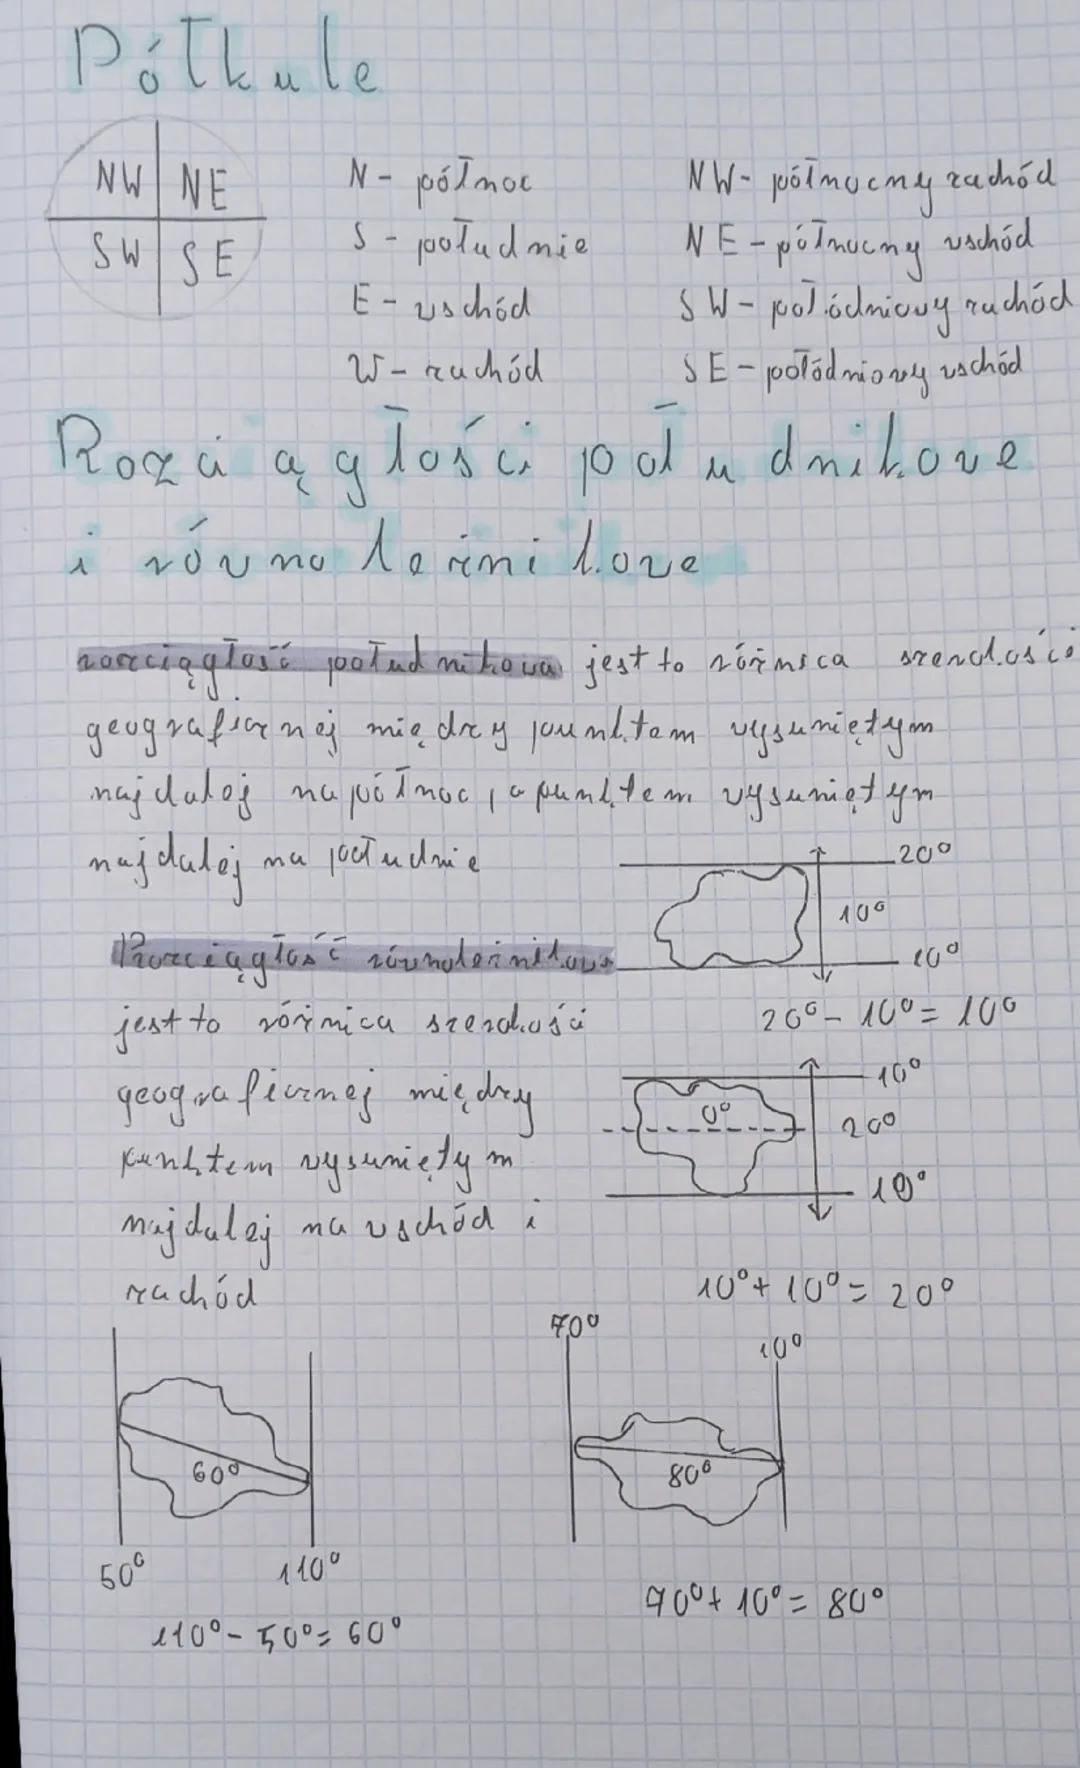 Półkule
NW NE
SW SE
N - północ
S - południe
E - wschód
W - zachód
NW - północny zachód
NE - północny wschód
SW - połódniowy zachód
SE - połódniowy wschód
Roz ciągłości południkowe
i równoleżnikowe
rozciągłość południkowa jest to różnica szerokości
geograficznej między punktem wysuniętym
najdalej na północ, a punktem wysuniętym
najdalej na południe
20°
10°
10°
20° - 10° = 10°
Rozciągłość równoleżnikowa
jest to różnica szerokości
geograficznej między
punktem wysuniętym
najdalej na wschód i
zachód
10°
0°
20°
10°
10° + 10° = 20°
60°
50° 110°
110° - 50° = 60°
70° 10°
80°
70° + 10° = 80°